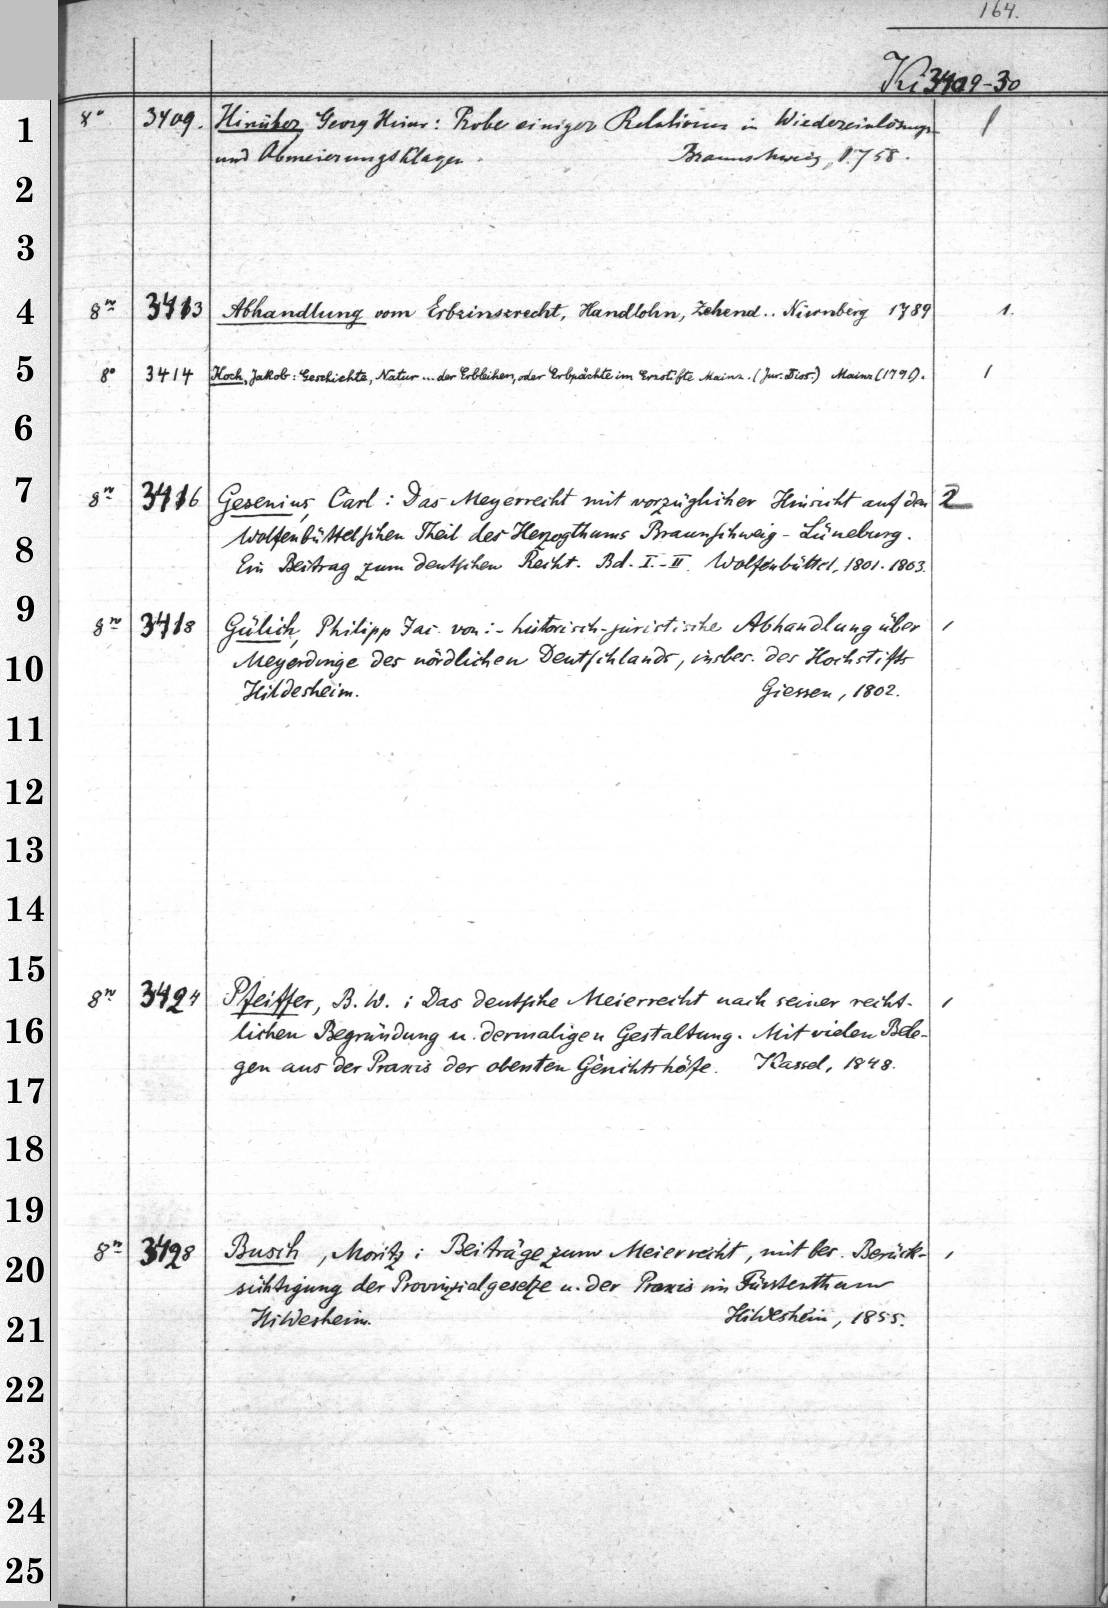 164.
Ki 3409-30
1 8° 3409. Hinüber Georg Heinr: Probe einiger Relationen in Wiedereinlösungs-
und Abmeierungsklagen. Braunschweig, 1758. 1
2
3
4 8° 3413 Abhandlung vom Erbzinsrecht, Handlohn, Zehend.. Nürnberg 1789 1.
5 8° 3414 Hoch, Jakob: Geschichte, Natur ... der Erbleihen, oder Erbpächte im Erzstifte Mainz. (Jur. Diss.) Mainz (1791). 1
6
7 8° 3416 Gesenius, Carl: Das Meyerrecht mit vorzüglicher Hinsicht auf den 2
8 Wolfenbüttelschen Theil des Herzogthums Braunschweig - Lüneburg.
Ein Beitrag zum deutschen Recht. Bd. I.-II. Wolfenbüttel, 1801. 1803.
9 8° 3418 Gülich, Philipp Jac. von: - historisch-juristische Abhandlung über 1
10 Meyerdinge des nördlichen Deutschlands, insbes. des Hochstifts
Hildesheim. Giessen, 1802.
11
12
13
14
15 8° 3424 Pfeiffer, B. W.: Das deutsche Meierrecht nach seiner recht- 1
16 lichen Begründung u. dermaligen Gestaltung. Mit vielen Bele-
gen aus der Praxis der obersten Gerichtshöfe. Kassel, 1848.
17
18
19
20 8° 3428 Busch, Moritz: Beiträge zum Meierrecht, mit bes. Berück- 1
sichtigung der Provinzialgesetze u. der Praxis im Fürstenthum
21 Hildesheim. Hildesheim, 1855.
22
23
24
25